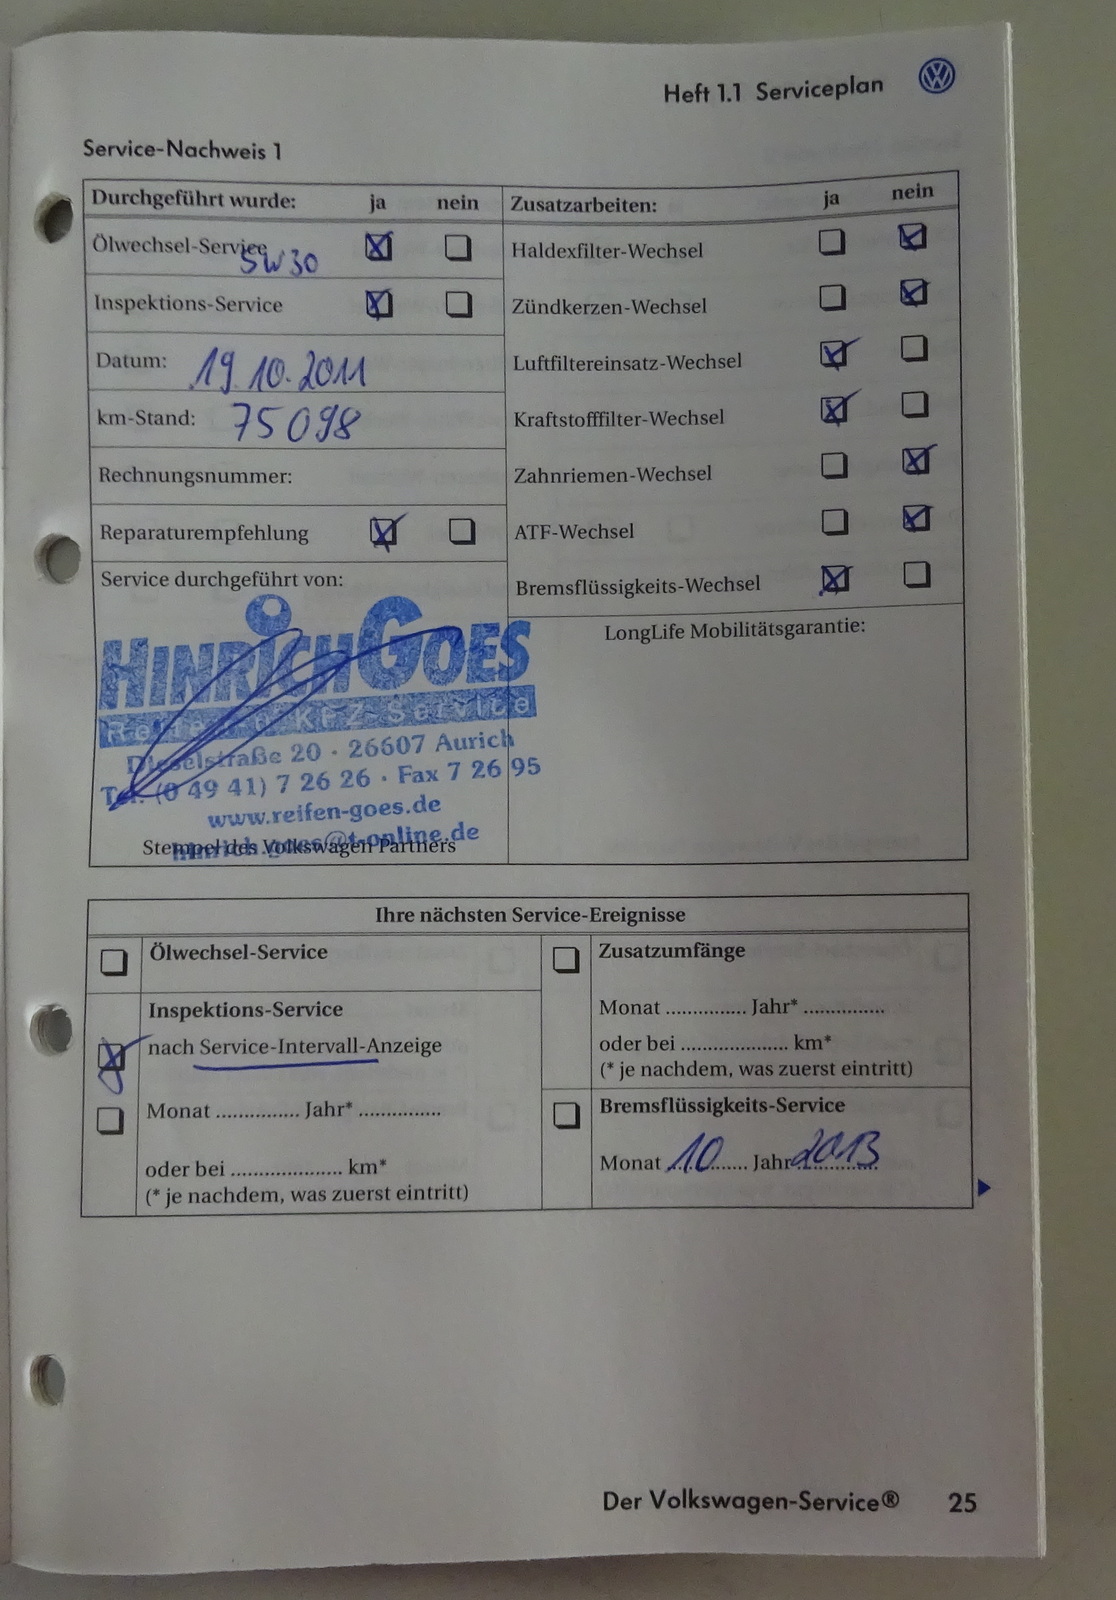 Heft 1.1 Serviceplan
Service-Nachweis 1
Durchgeführt wurde: ja nein
Ölwechsel-Service
5W30
Inspektions-Service
Datum: 19.10.2011
km-Stand: 75098
Rechnungsnummer:
Reparaturempfehlung
Service durchgeführt von:
HINRICH GOES
Reifen KFZ-Service
Dieselstraße 20 · 26607 Aurich
Tel. (0 49 41) 7 26 26 · Fax 7 26 95
www.reifen-goes.de
hinrich.goes@t-online.de
Stempel des Volkswagen Partners
Zusatzarbeiten: ja nein
Haldexfilter-Wechsel
Zündkerzen-Wechsel
Luftfiltereinsatz-Wechsel
Kraftstofffilter-Wechsel
Zahnriemen-Wechsel
ATF-Wechsel
Bremsflüssigkeits-Wechsel
LongLife Mobilitätsgarantie:
Ihre nächsten Service-Ereignisse
Ölwechsel-Service
Inspektions-Service
nach Service-Intervall-Anzeige
Monat ............... Jahr* ...............
oder bei .................... km*
(* je nachdem, was zuerst eintritt)
Zusatzumfänge
Monat ............... Jahr* ...............
oder bei .................... km*
(* je nachdem, was zuerst eintritt)
Bremsflüssigkeits-Service
Monat 10 Jahr 2013
Der Volkswagen-Service® 25